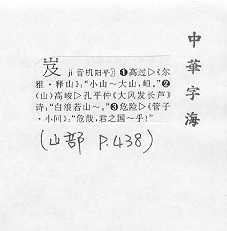 中華字海
岌 jí 音机阳平〗❶高过▷《尔
雅·释山》:“小山～大山,峘。”❷
(山)高峻▷孔平仲《大风发长芦》
诗:“白浪若山～。”❸危险▷《管子
·小问》:“危哉,君之国～乎!”
(山部 P.438)